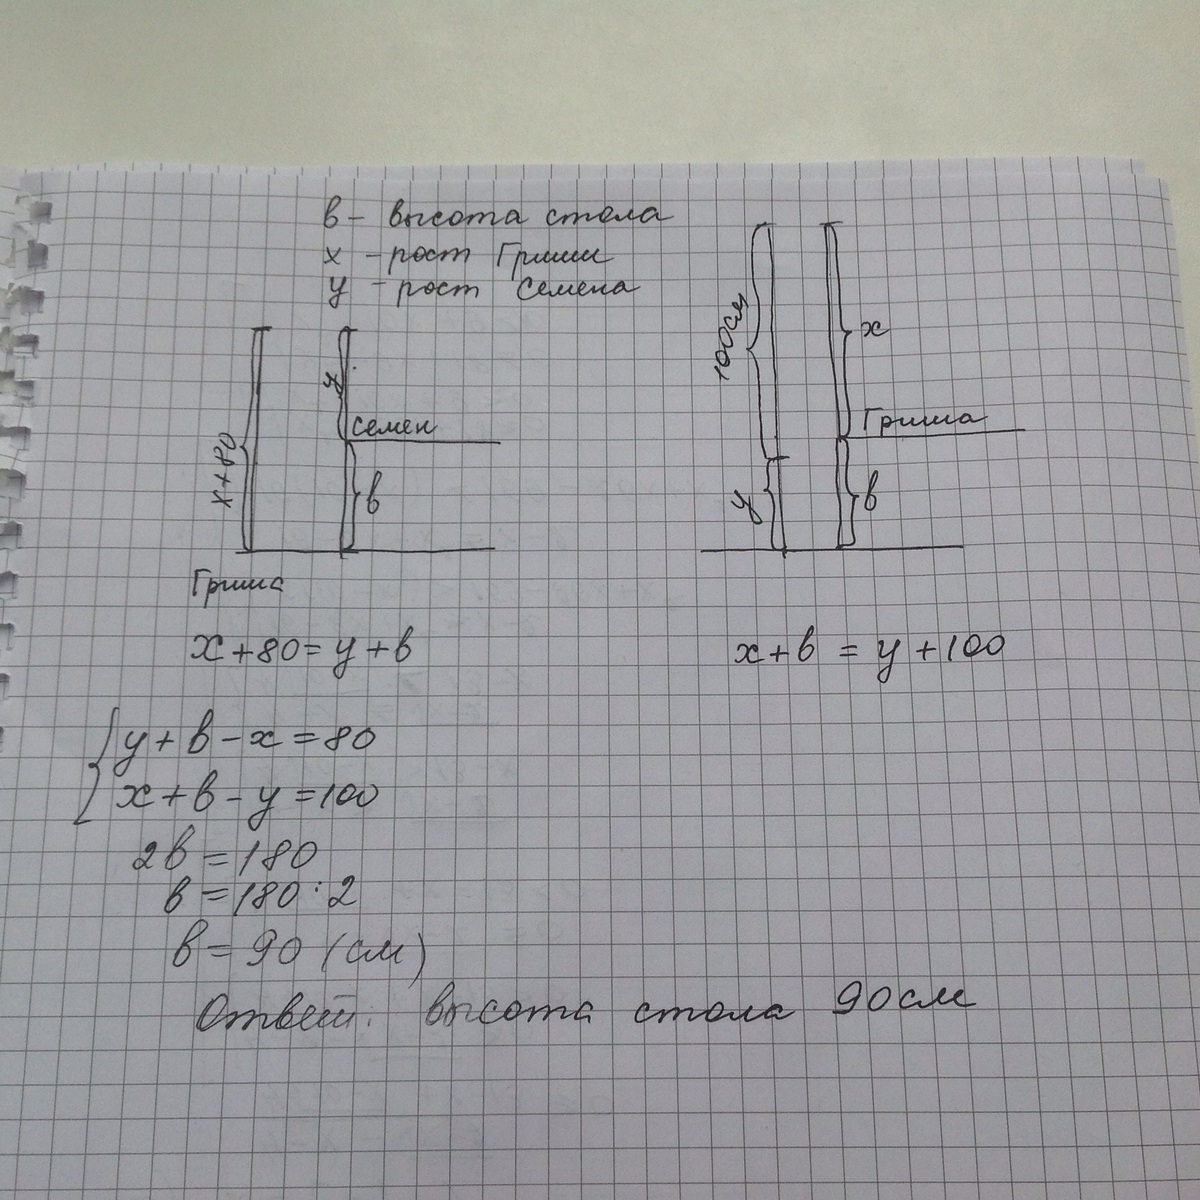 в - высота стола
х - рост Гриши
у - рост Семена
х+80
у
Семен
в
Гриша
100см
у
х
Гриша
в
х+80=у+в
х+в = у+100
{ у+в-х=80
х+в-у=100
2в=180
в=180:2
в=90 (см)
Ответ: высота стола 90см